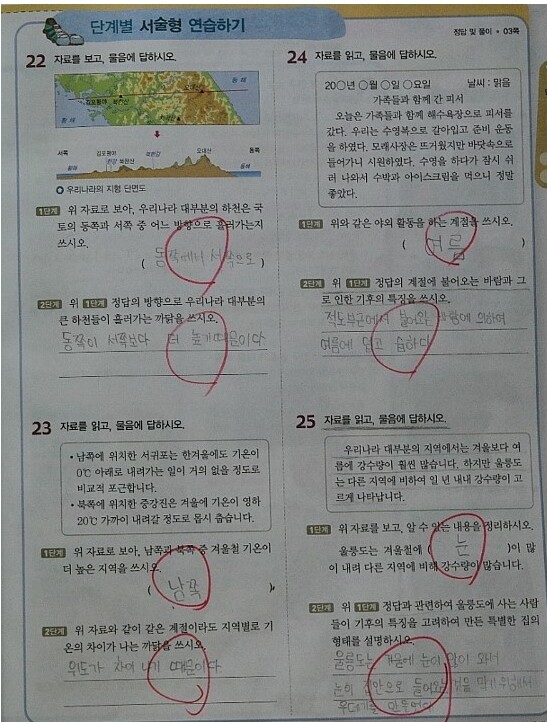 단계별 서술형 연습하기
정답 및 풀이 • 03쪽
22 자료를 보고, 물음에 답하시오.
동해
김포평야
북한산
오대산
황해
서쪽
김포평야
한강
북한산
북한강
오대산
동쪽
황해
동해
우리나라의 지형 단면도
1단계 위 자료로 보아, 우리나라 대부분의 하천은 국
토의 동쪽과 서쪽 중 어느 방향으로 흘러가는지
쓰시오.
( 동쪽에서 서쪽으로 )
2단계 위 1단계 정답의 방향으로 우리나라 대부분의
큰 하천들이 흘러가는 까닭을 쓰시오.
동쪽이 서쪽보다 더 높기때문이다
23 자료를 읽고, 물음에 답하시오.
• 남쪽에 위치한 서귀포는 한겨울에도 기온이
0℃ 아래로 내려가는 일이 거의 없을 정도로
비교적 포근합니다.
• 북쪽에 위치한 중강진은 겨울에 기온이 영하
20℃ 가까이 내려갈 정도로 몹시 춥습니다.
1단계 위 자료로 보아, 남쪽과 북쪽 중 겨울철 기온이
더 높은 지역을 쓰시오.
( 남쪽 )
2단계 위 자료와 같이 같은 계절이라도 지역별로 기
온의 차이가 나는 까닭을 쓰시오.
위도가 차이 나기 때문이다.
24 자료를 읽고, 물음에 답하시오.
20○년 ○월 ○일 ○요일 날씨 : 맑음
가족들과 함께 간 피서
오늘은 가족들과 함께 해수욕장으로 피서를
갔다. 우리는 수영복으로 갈아입고 준비 운동
을 하였다. 모래사장은 뜨거웠지만 바닷속으로
들어가니 시원하였다. 수영을 하다가 잠시 쉬
러 나와서 수박과 아이스크림을 먹으니 정말
좋았다.
1단계 위와 같은 야외 활동을 하는 계절을 쓰시오.
( 여름 )
2단계 위 1단계 정답의 계절에 불어오는 바람과 그
로 인한 기후의 특징을 쓰시오.
적도부근에서 불어와 바람에 의하여
여름에 덥고 습하다
25 자료를 읽고, 물음에 답하시오.
우리나라 대부분의 지역에서는 겨울보다 여
름에 강수량이 훨씬 많습니다. 하지만 울릉도
는 다른 지역에 비하여 일 년 내내 강수량이 고
르게 나타납니다.
1단계 위 자료를 보고, 알 수 있는 내용을 정리하시오.
울릉도는 겨울철에 ( 눈 )이 많
이 내려 다른 지역에 비해 강수량이 많습니다.
2단계 위 1단계 정답과 관련하여 울릉도에 사는 사람
들이 기후의 특징을 고려하여 만든 특별한 집의
형태를 설명하시오.
울릉도는 겨울에 눈이 많이 와서
눈이 집안으로 들어오는 것을 막기위해서
우데기를 만들었다